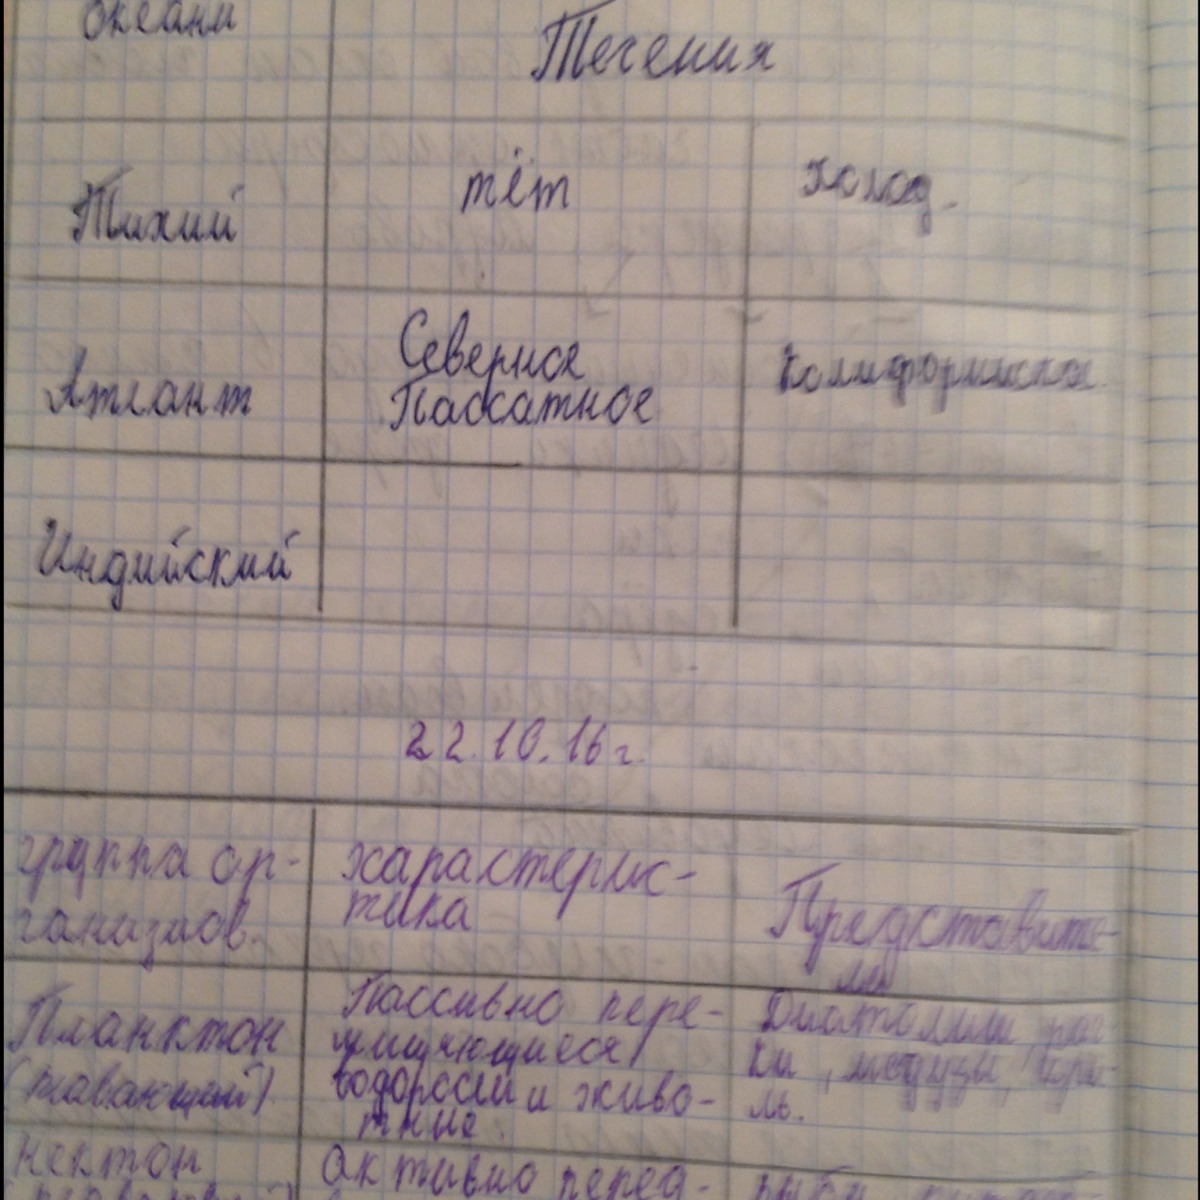 океани
Течения
Тихий
тёт
холод.
Атлант
Северное
Пассатное
Калифорнийское
Индийский
22.10.16г.
группа ор-
ганизмов.
характерис-
тика
Представите-
ли
Планктон
(плавающий)
Пассивно пере-
мещающиеся
водоросли и живо-
тные.
Диатомии, рач-
ки, медузы, кри-
ль.
нектон
активно перед-
рыбы,